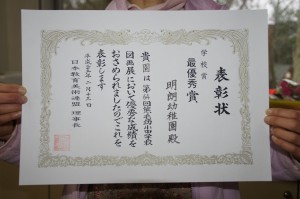 表彰状
学校賞
最優秀賞
明朗幼稚園殿
貴園は第
図画展において優秀な成績を
おさめられましたのでこれを
表彰します
日本教育美術連盟 理事長